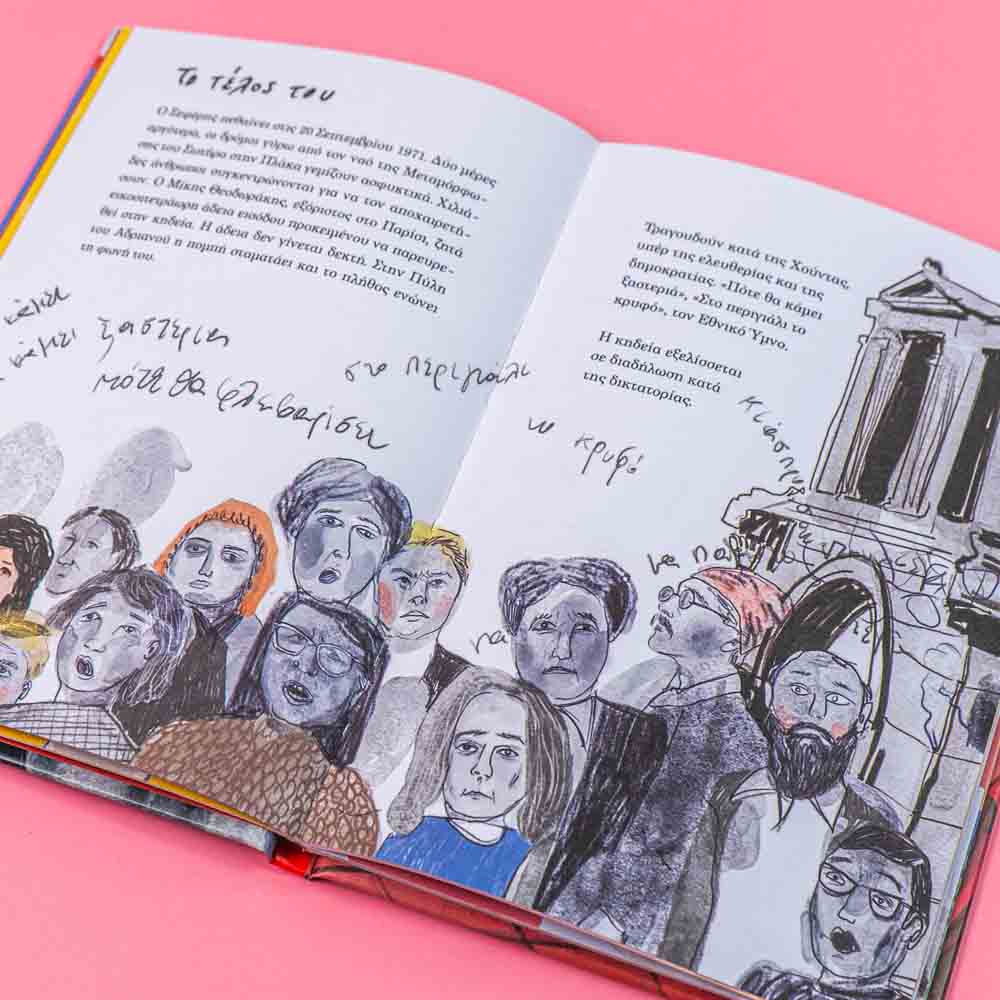 Το τέλος του
Ο Σεφέρης πεθαίνει στις 20 Σεπτεμβρίου 1971. Δύο μέρες
αργότερα, οι δρόμοι γύρω από τον ναό της Μεταμόρφω-
σης του Σωτήρα στην Πλάκα γεμίζουν ασφυκτικά. Χιλιά-
δες άνθρωποι συγκεντρώνονται για να τον αποχαιρετή-
σουν. Ο Μίκης Θεοδωράκης, εξόριστος στο Παρίσι, ζητά
εικοσιτετράωρη άδεια εισόδου προκειμένου να παρευρε-
θεί στην κηδεία. Η άδεια δεν γίνεται δεκτή. Στην Πύλη
του Αδριανού η πομπή σταματάει και το πλήθος ενώνει
τη φωνή του.
κάμει
κάμει ξαστεριά
πότε θα φλεβαρίσει
στο περιγιάλι
το κρυφό
Τραγουδούν κατά της Χούντας,
υπέρ της ελευθερίας και της
δημοκρατίας. «Πότε θα κάμει
ξαστεριά», «Στο περιγιάλι το
κρυφό», τον Εθνικό Ύμνο.
Η κηδεία εξελίσσεται
σε διαδήλωση κατά
της δικτατορίας.